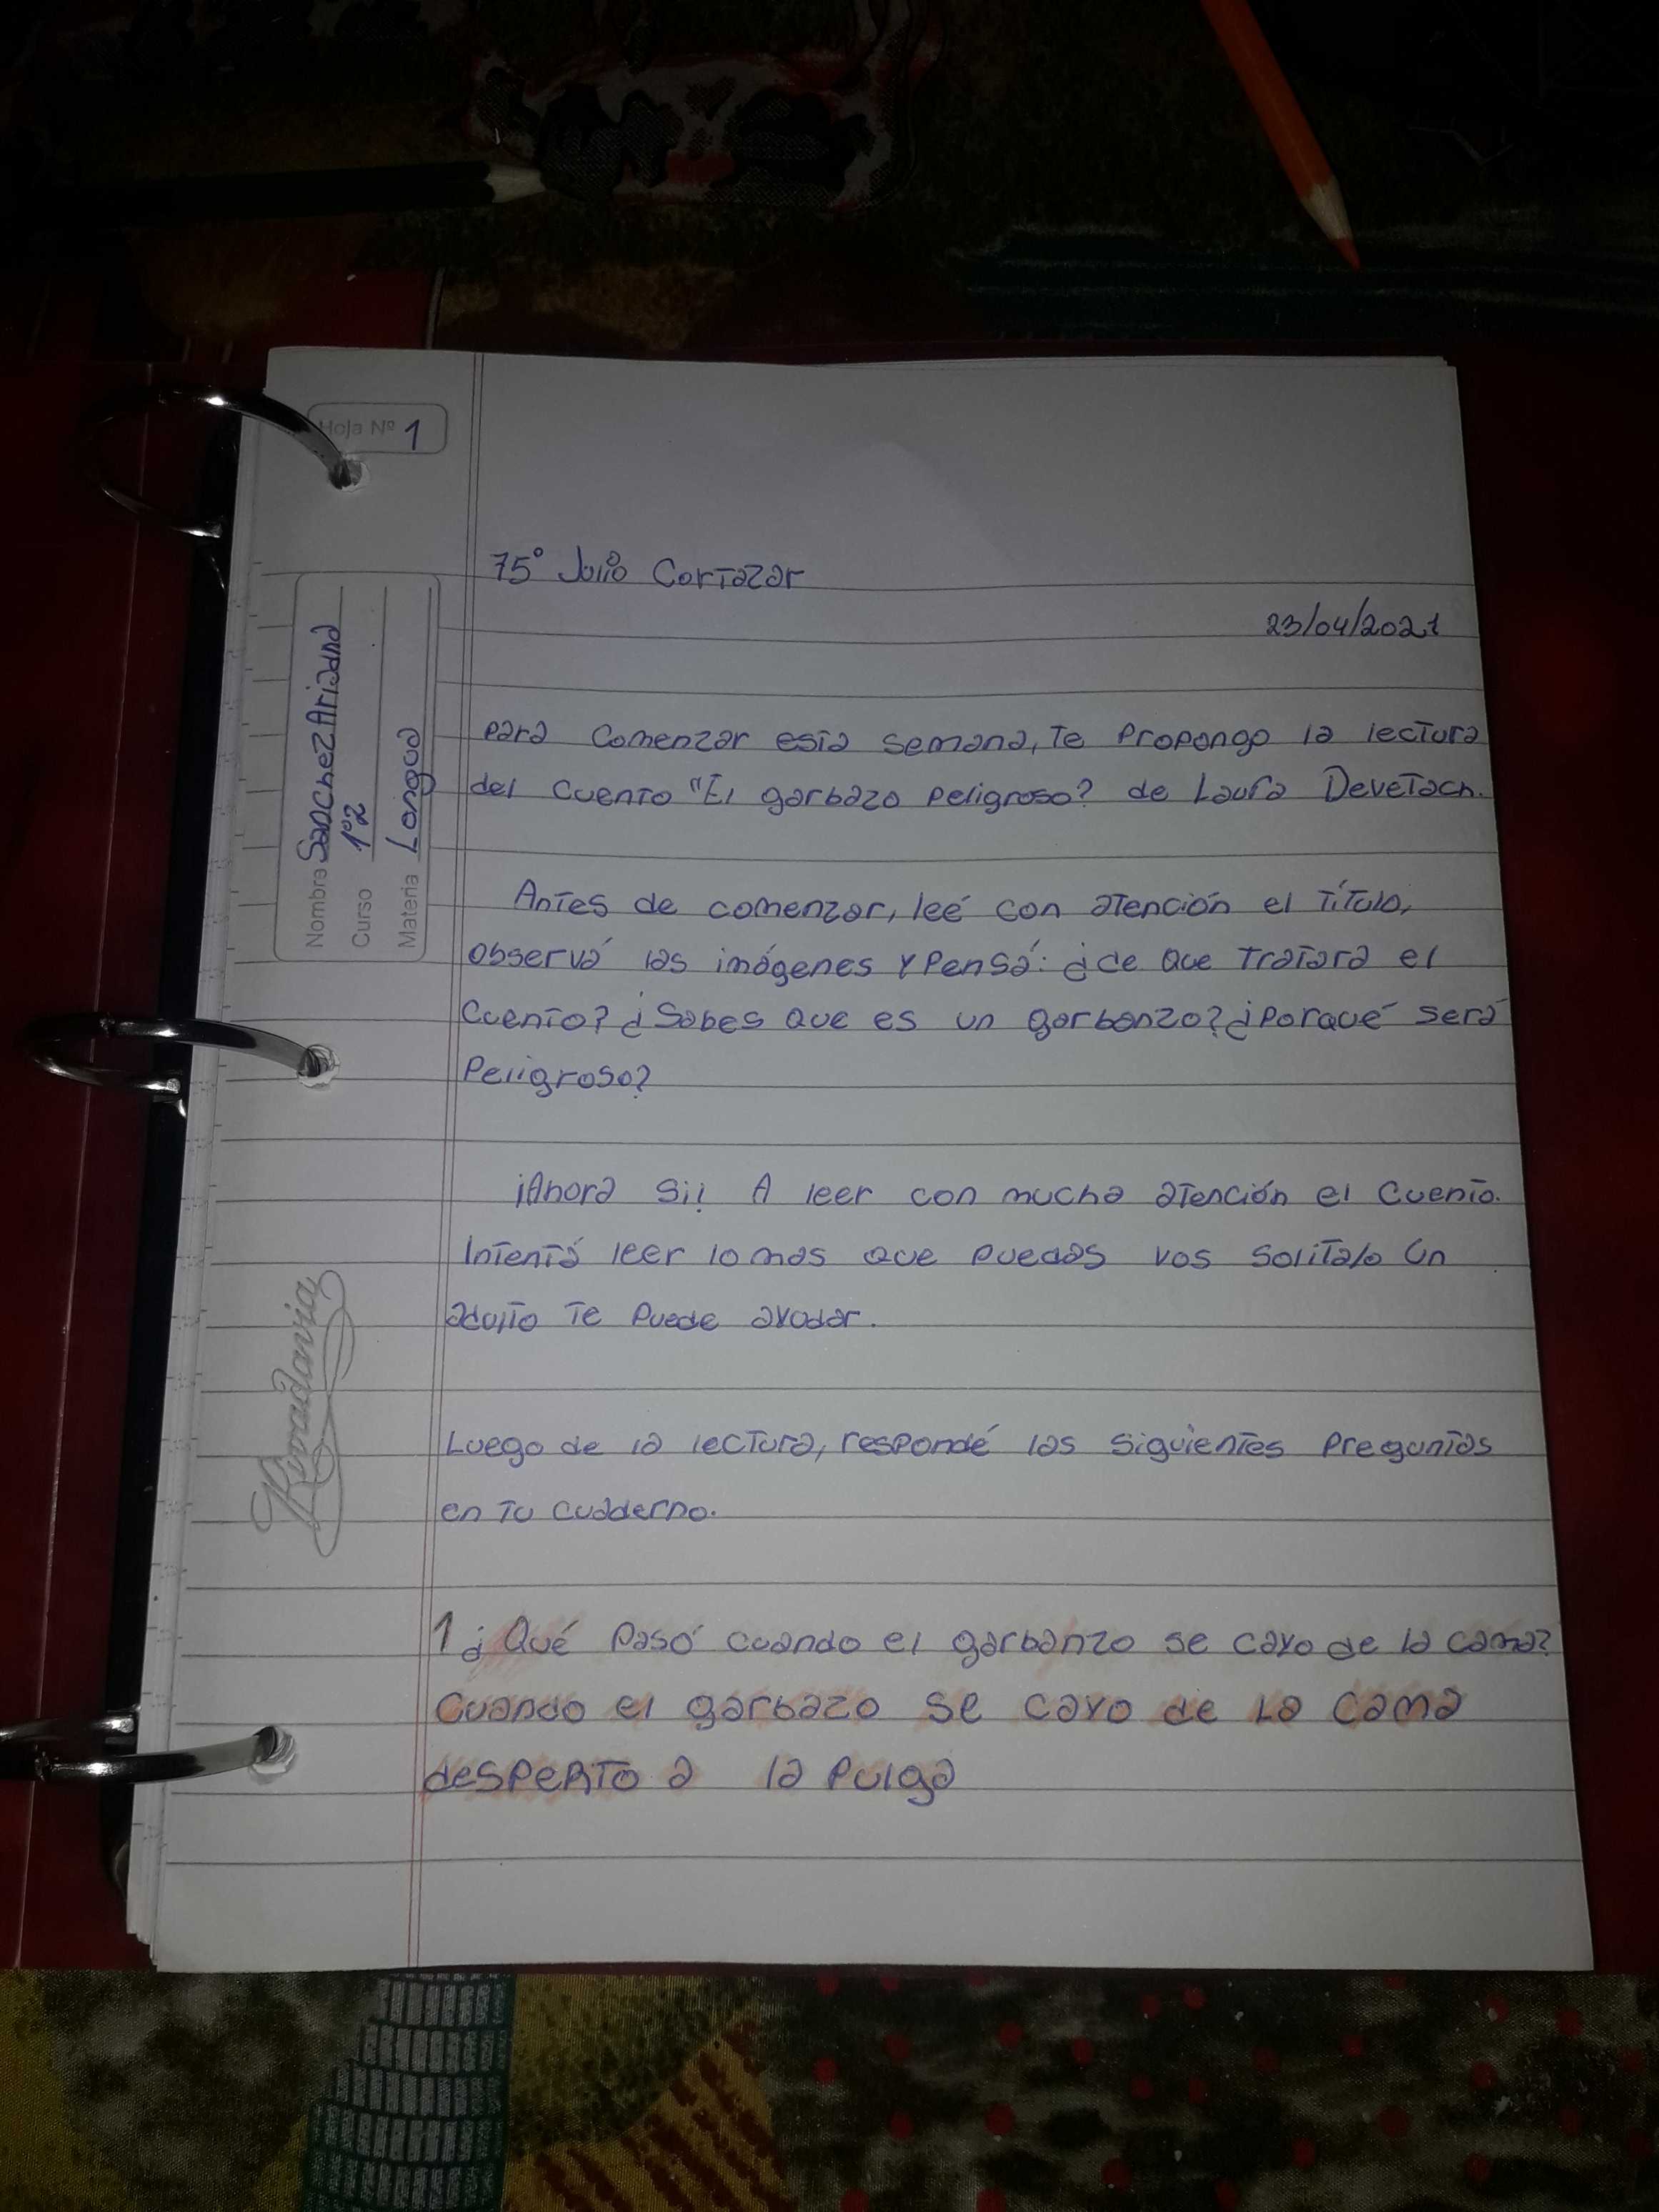 Hoja Nº 1
Nombre Sanchez Ariana
Curso 1º2
Materia Longua
Rivadavia
75º Julio Cortazar
23/04/2021
Para comenzar esta semana, te propongo la lectura
del cuento "El garbazo peligroso? de Laura Devetach.
Antes de comenzar, leé con atención el título,
observá las imágenes y pensá: ¿de que tratara el
cuento? ¿Sabes que es un garbanzo? ¿Porqué será
peligroso?
¡Ahora si! A leer con mucha atención el cuento.
Intentá leer lo mas que puedas vos solita/o Un
adulto te puede ayudar.
Luego de la lectura, respondé las siguientes preguntas
en tu cuaderno.
1 ¿Qué pasó cuando el garbanzo se cayo de la cama?
Cuando el garbazo se cayo de la cama
desperto a la pulga